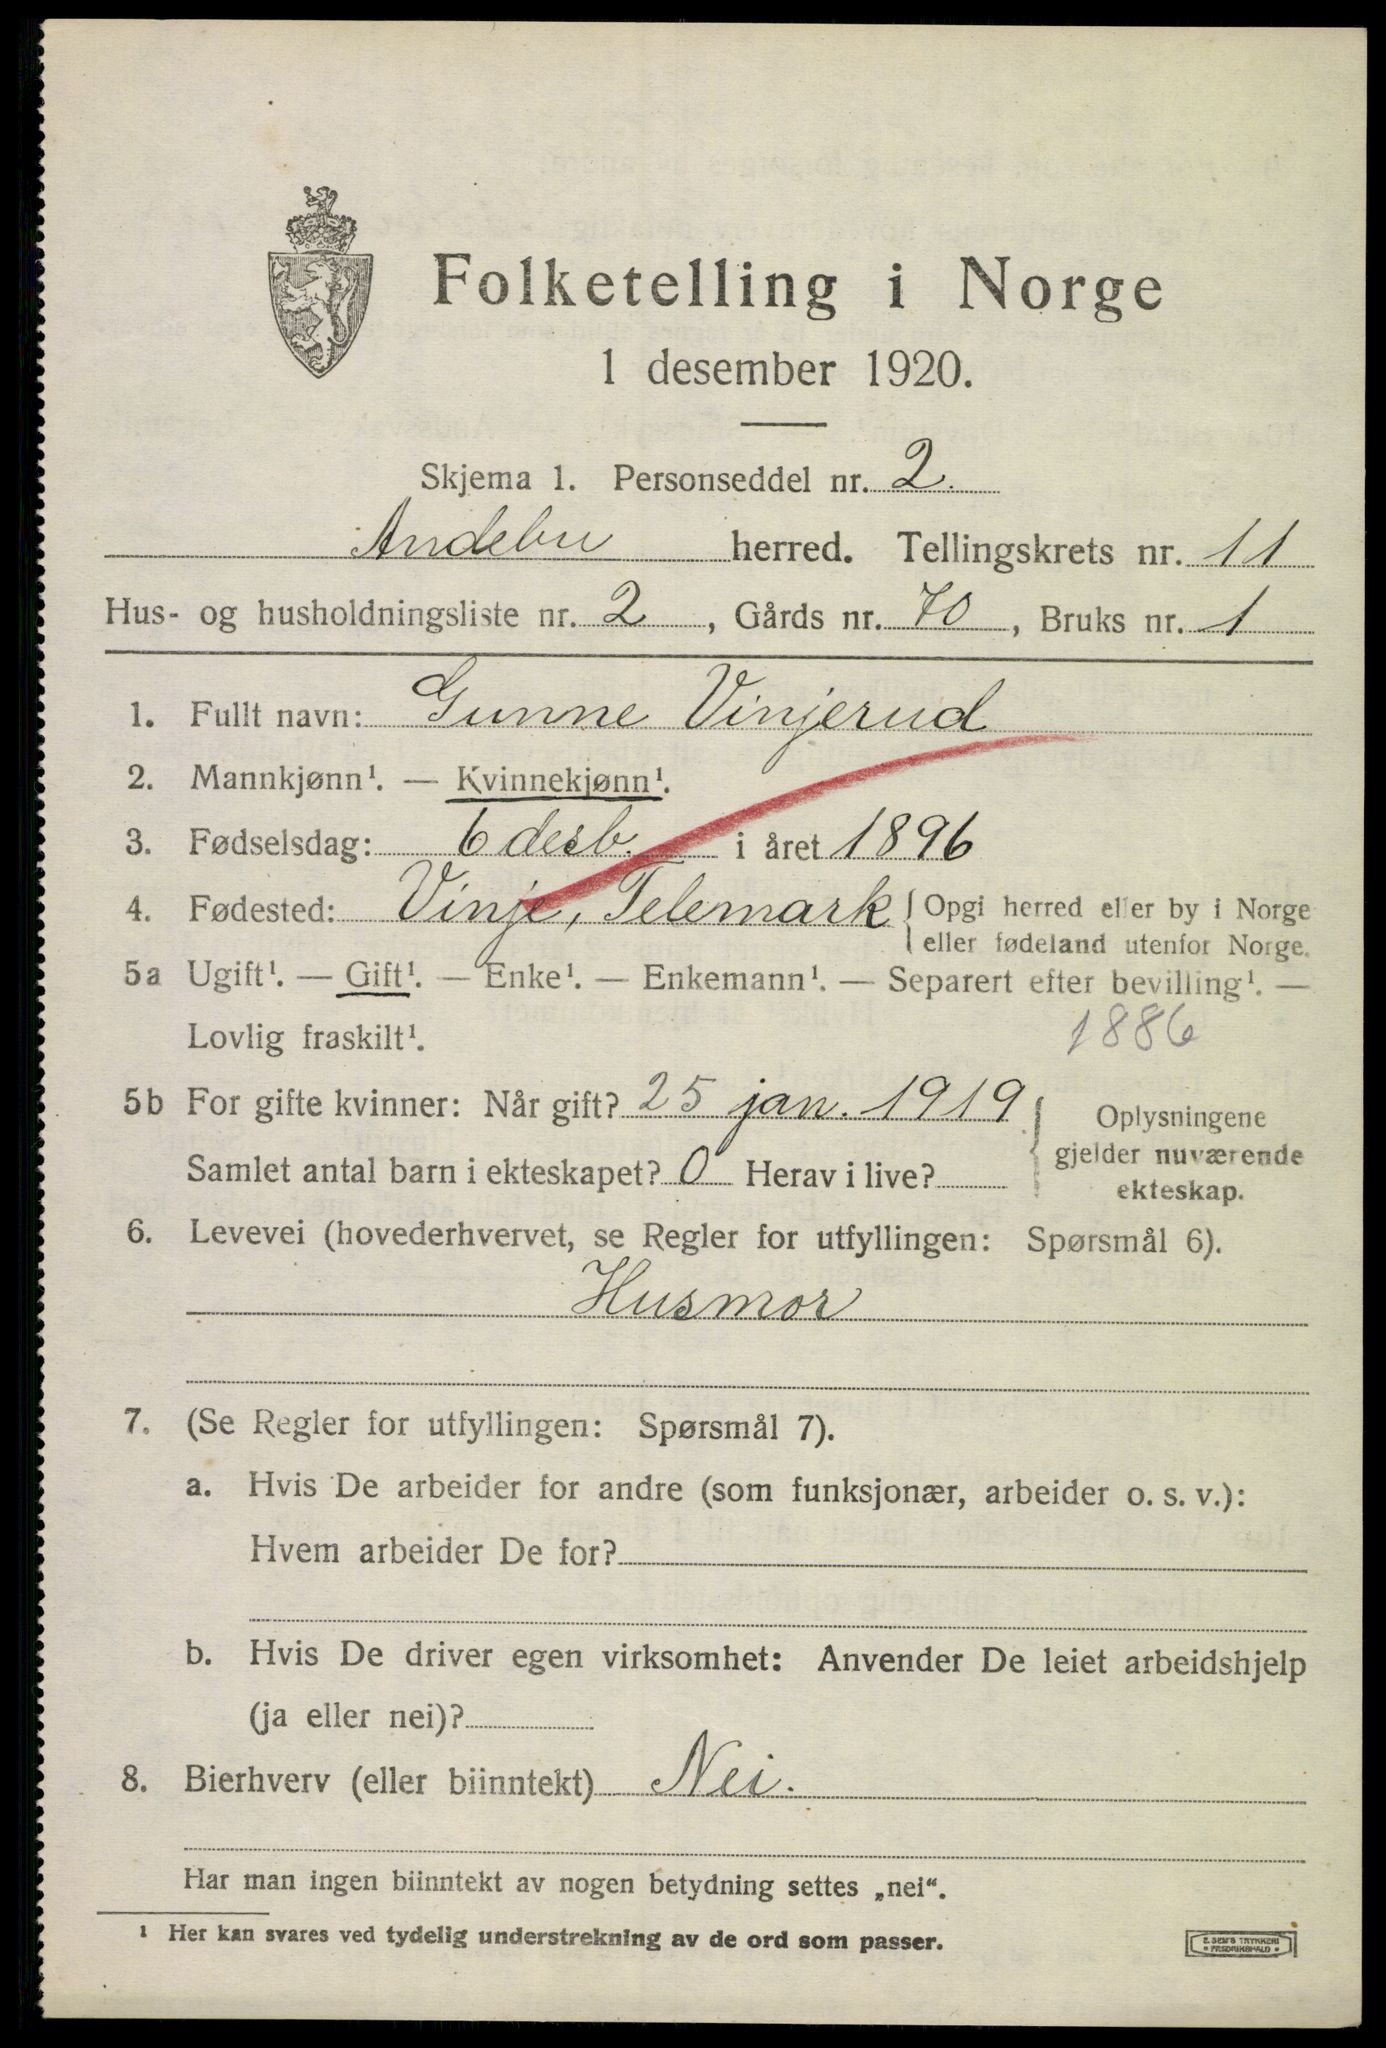 Folketelling i Norge
1 desember 1920.
Skjema 1. Personseddel nr. 2.
Andebu herred. Tellingskrets nr. 11
Hus- og husholdningsliste nr. 2, Gårds nr. 70, Bruks nr. 1
1. Fullt navn: Gunne Vinjerud
2. Mannkjønn¹. — Kvinnekjønn¹.
3. Fødselsdag: 6 desb. i året 1896
4. Fødested: Vinje, Telemark { Opgi herred eller by i Norge
eller fødeland utenfor Norge.
5a Ugift¹. — Gift¹. — Enke¹. — Enkemann¹. — Separert efter bevilling¹. —
Lovlig fraskilt¹. 1886
5b For gifte kvinner: Når gift? 25 jan. 1919 { Oplysningene
gjelder nuværende
Samlet antal barn i ekteskapet? 0 Herav i live?
ekteskap.
6. Levevei (hovederhvervet, se Regler for utfyllingen: Spørsmål 6).
Husmor
7. (Se Regler for utfyllingen: Spørsmål 7).
a. Hvis De arbeider for andre (som funksjonær, arbeider o. s. v.):
Hvem arbeider De for?
b. Hvis De driver egen virksomhet: Anvender De leiet arbeidshjelp
(ja eller nei)?
8. Bierhverv (eller biinntekt) Nei.
Har man ingen biinntekt av nogen betydning settes „nei“.
¹ Her kan svares ved tydelig understrekning av de ord som passer.
E. SEM'S TRYKKERI
• FREDRIKSHALD •